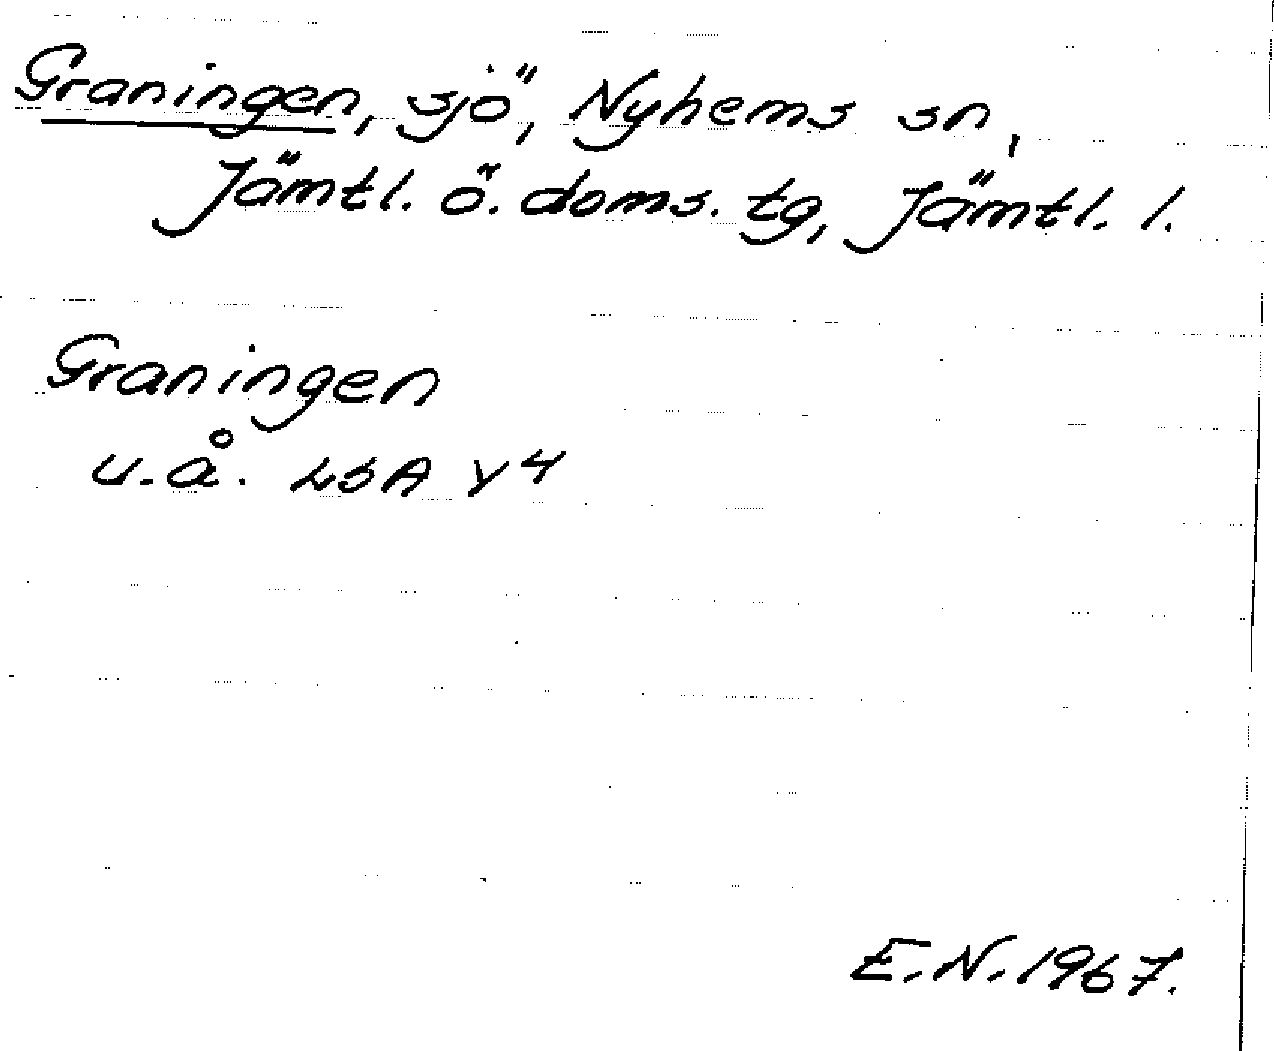 Graningen, sjö, Nyhems sn,
Jämtl. ö. doms. tg, Jämtl. l.
Graningen
u.å. LSA Y 4
E.N. 1967.